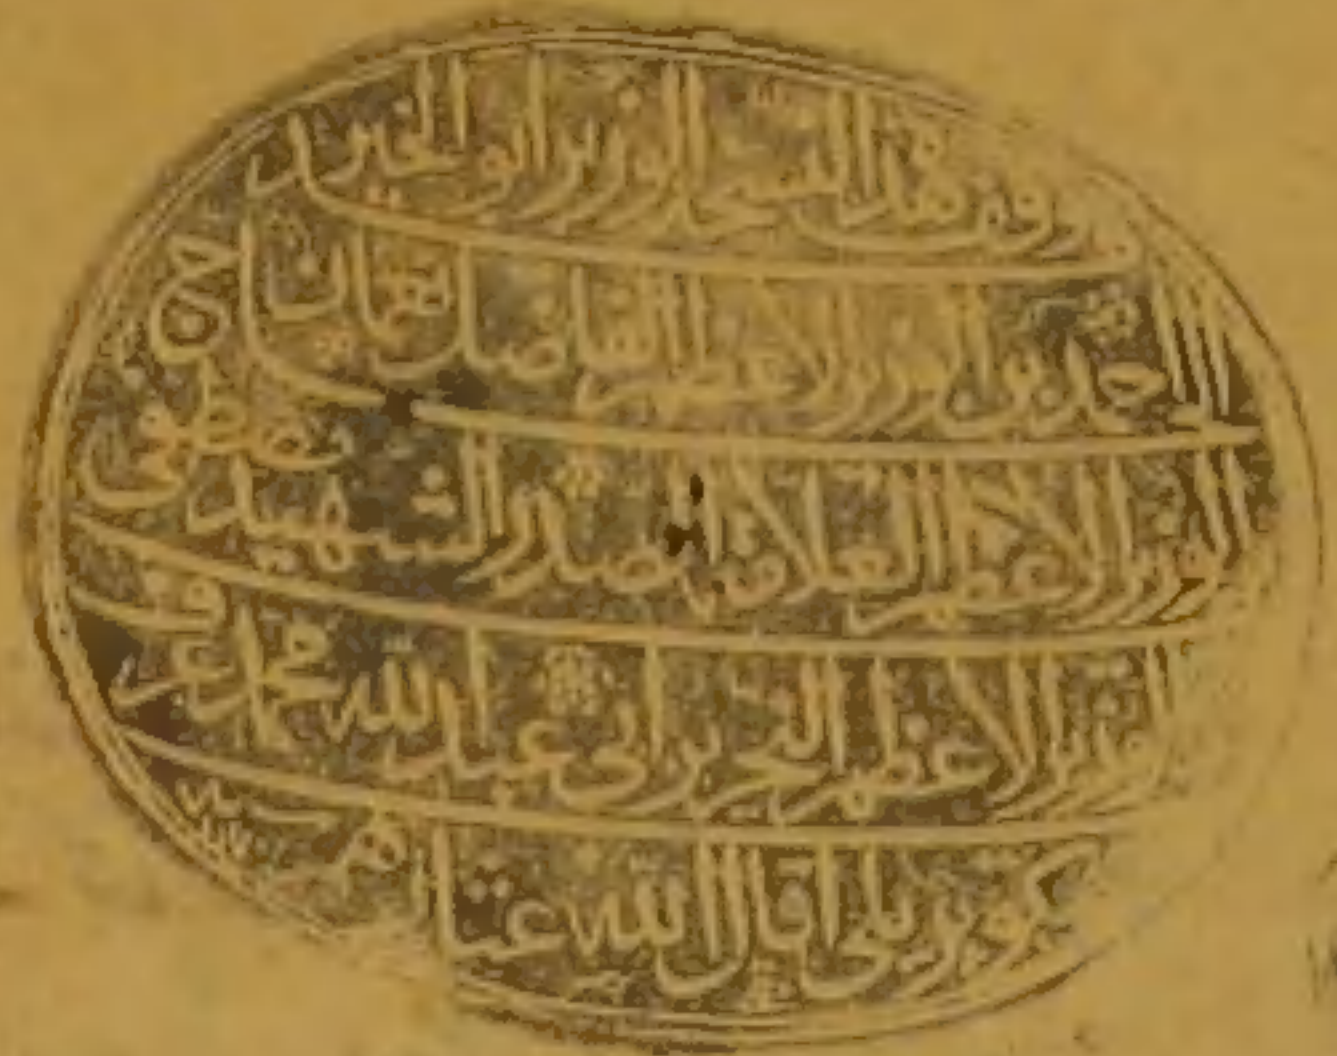 قد وقف هذا النسخة الوزير ابو الخير
احمد بن الوزير الاعظم الفاضل نعمان باشا بن
الوزير الاعظم العلامة الصدر الشهيد مصطفى
الوزير الاعظم النحرير ابي عبد الله محمد عرف
كوپريلى اقال الله عثارهم